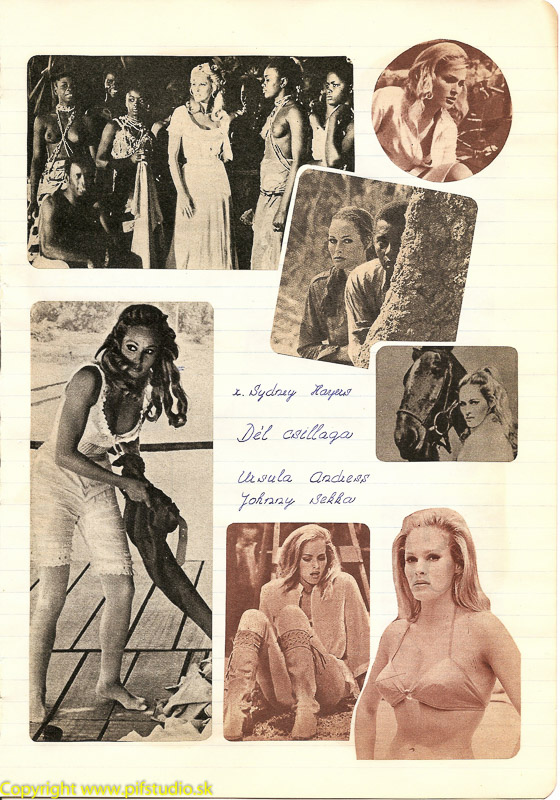 r. Sydney Hayers
Dél csillaga
Ursula Andress
Johnny Sekka
Copyright www.pifstudio.sk